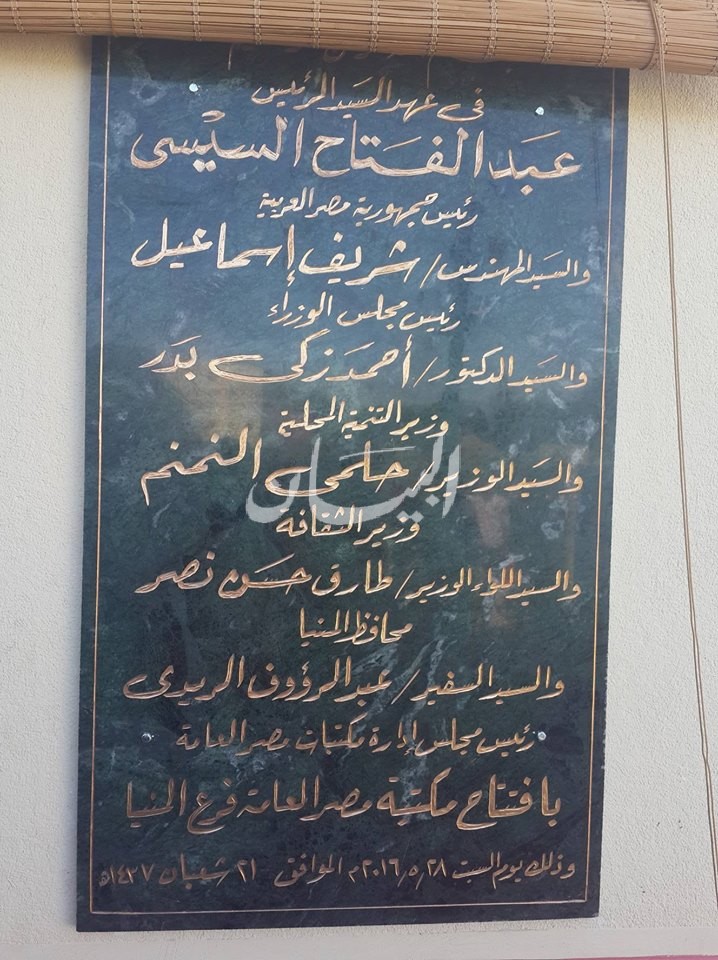 فى عهد السيد الرئيس
عبد الفتاح السيسى
رئيس جمهورية مصر العربية
والسيد المهندس / شريف إسماعيل
رئيس مجلس الوزراء
والسيد الدكتور / أحمد زكى بدر
وزير التنمية المحلية
والسيد الوزير / حلمي النمنم
البيان
وزير الثقافة
والسيد اللواء الوزير / طارق حسن نصر
محافظ المنيا
والسيد السفير / عبد الرؤوف الريدى
رئيس مجلس إدارة مكتبات مصر العامة
بافتتاح مكتبة مصر العامة فرع المنيا
وذلك يوم السبت ٢٠١٦/٥/٢٨م الموافق ٢١ شعبان ١٤٣٧ه